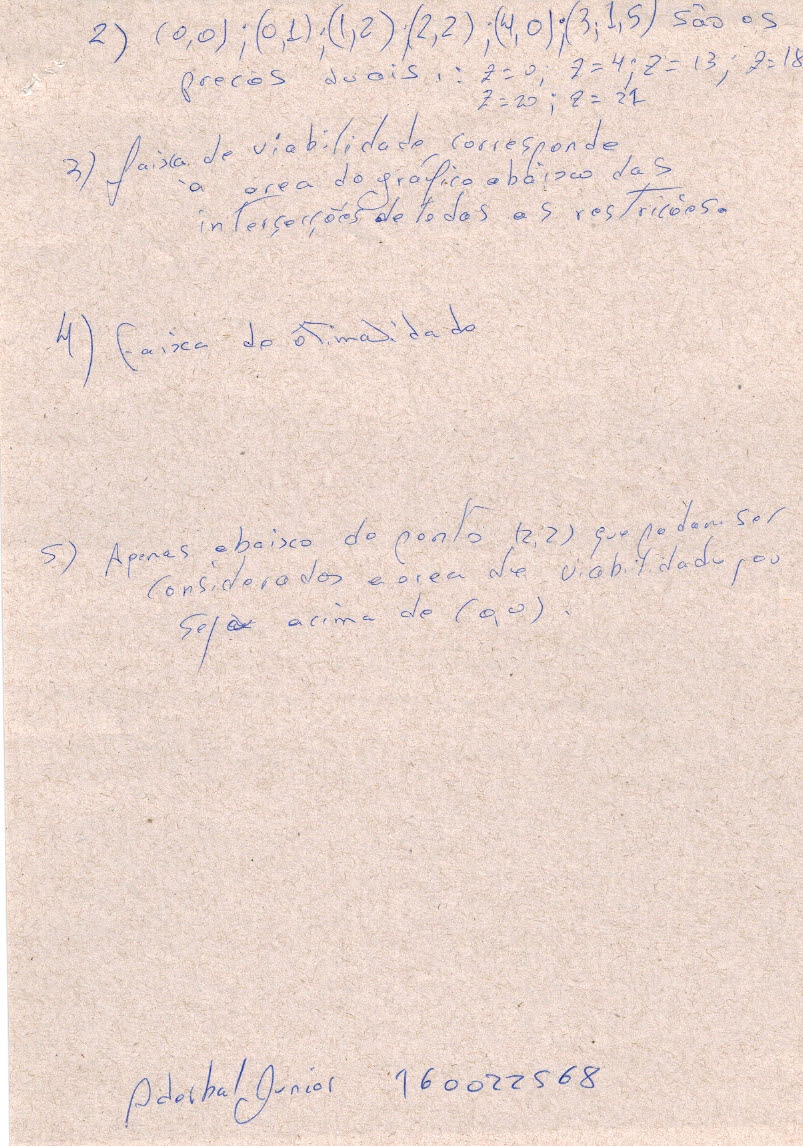 2) (0,0) ; (0,1) ; (1,2) ; (2,2) ; (4,0) ; (3,1,5) são os
preços duais, : z=0; z=4; z=13; z=18
z=20; z=21
3) faixa de viabilidade, corresponde
à área do gráfico abaixo das
interserções de todas as restrições.
4) faixa de otimalidade
5) Apenas abaixo do ponto (2,2) que podem ser
considerados a area de viabilidade, ou
seja acima de (0,0).
Aderbal Junior 160022568